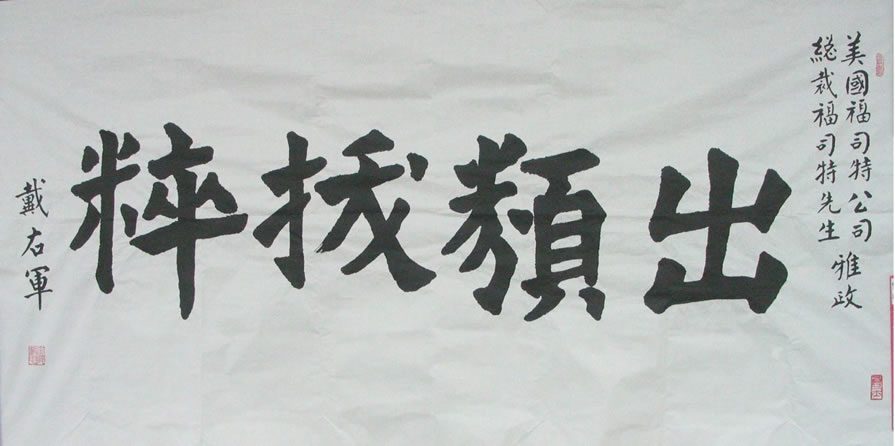 美國福司特公司
總裁福司特先生 雅政
出類拔粹
戴右軍